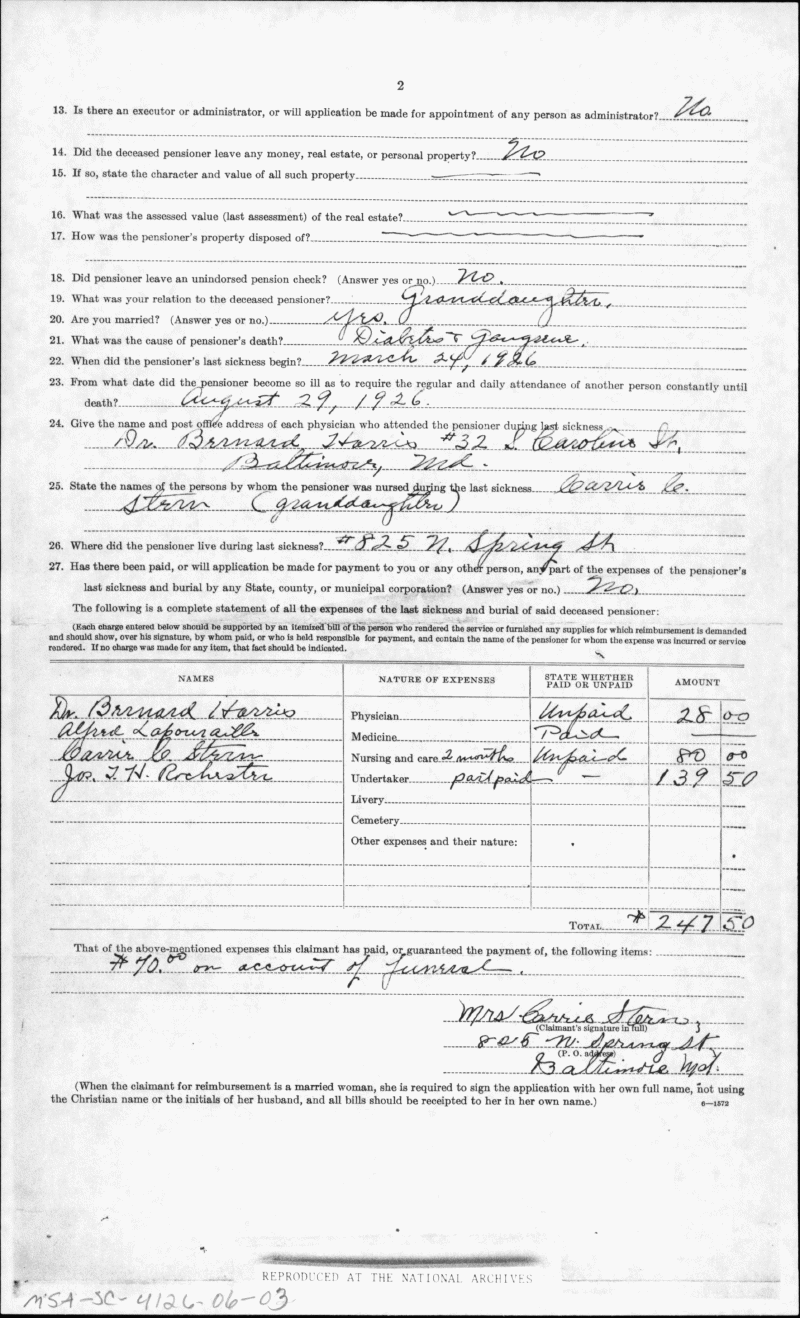 2
13. Is there an executor or administrator, or will application be made for appointment of any person as administrator? No.
14. Did the deceased pensioner leave any money, real estate, or personal property? No
15. If so, state the character and value of all such property
16. What was the assessed value (last assessment) of the real estate?
17. How was the pensioner's property disposed of?
18. Did pensioner leave an unindorsed pension check? (Answer yes or no.) No.
19. What was your relation to the deceased pensioner? Granddaughter.
20. Are you married? (Answer yes or no.) Yes.
21. What was the cause of pensioner's death? Diabetes & Gangrene.
22. When did the pensioner's last sickness begin? March 24, 1926
23. From what date did the pensioner become so ill as to require the regular and daily attendance of another person constantly until
death? August 29, 1926.
24. Give the name and post office address of each physician who attended the pensioner during last sickness
Dr. Bernard Harris #32 S. Caroline St,
Baltimore, Md.
25. State the names of the persons by whom the pensioner was nursed during the last sickness Carrie C.
Stern (granddaughter)
26. Where did the pensioner live during last sickness? #825 N. Spring St
27. Has there been paid, or will application be made for payment to you or any other person, any part of the expenses of the pensioner's
last sickness and burial by any State, county, or municipal corporation? (Answer yes or no.) No,
The following is a complete statement of all the expenses of the last sickness and burial of said deceased pensioner:
(Each charge entered below should be supported by an itemized bill of the person who rendered the service or furnished any supplies for which reimbursement is demanded
and should show, over his signature, by whom paid, or who is held responsible for payment, and contain the name of the pensioner for whom the expense was incurred or service
rendered. If no charge was made for any item, that fact should be indicated.
NAMES NATURE OF EXPENSES STATE WHETHER PAID OR UNPAID AMOUNT
Dr. Bernard Harris Physician Unpaid 28 00
Alfred Lapouraille Medicine Paid
Carrie C. Stern Nursing and care 2 months Unpaid 80 00
Jos. T. H. Rochester Undertaker part paid – 139 50
Livery
Cemetery
Other expenses and their nature:
TOTAL $ 247 50
That of the above-mentioned expenses this claimant has paid, or guaranteed the payment of, the following items:
$70.00 on account of funeral.
Mrs Carrie Stern,
(Claimant's signature in full)
825 N. Spring St.
(P. O. address)
Baltimore Md.
(When the claimant for reimbursement is a married woman, she is required to sign the application with her own full name, not using
the Christian name or the initials of her husband, and all bills should be receipted to her in her own name.)
6—1572
REPRODUCED AT THE NATIONAL ARCHIVES
MSA-SC-4126-06-03